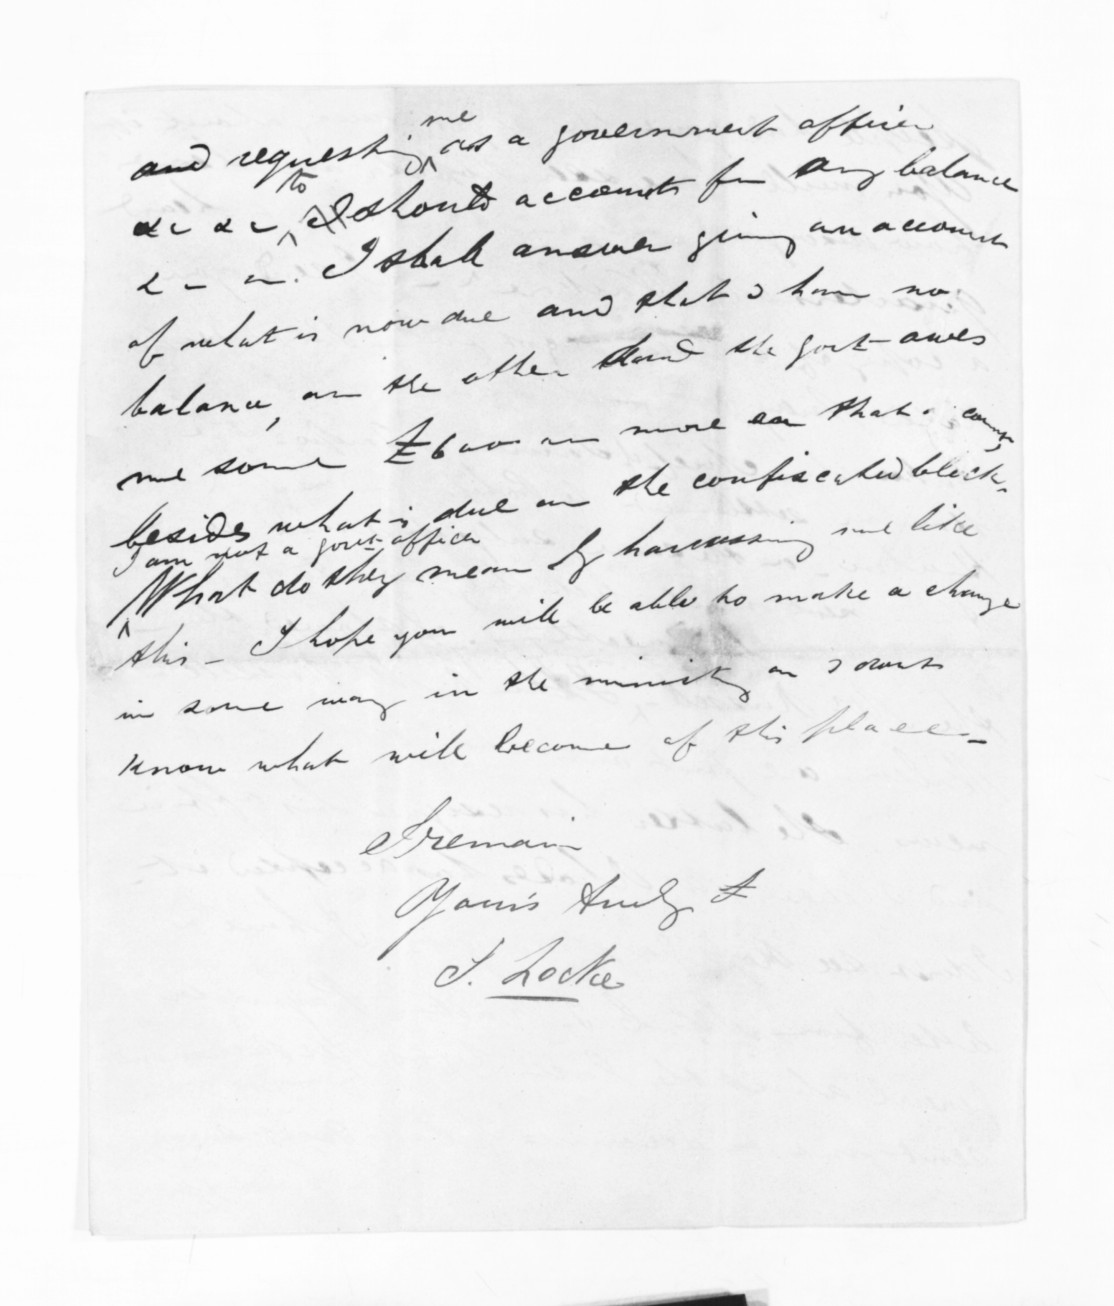 and requesting me as a government officer
&c &c to I should account for any balance
&c &c. I shall answer giving an account
of what is now due and that I have no
balance, on the other hand the govt owes
me some £600 or more on that account,
besides what is due on the confiscated block.
I am not a govt officer
What do they mean by harrassing me like
this - I hope you will be able to make a change
in some way in the ministry or I dont
know what will become of this place -
I remain
Yours truly
J. Locke